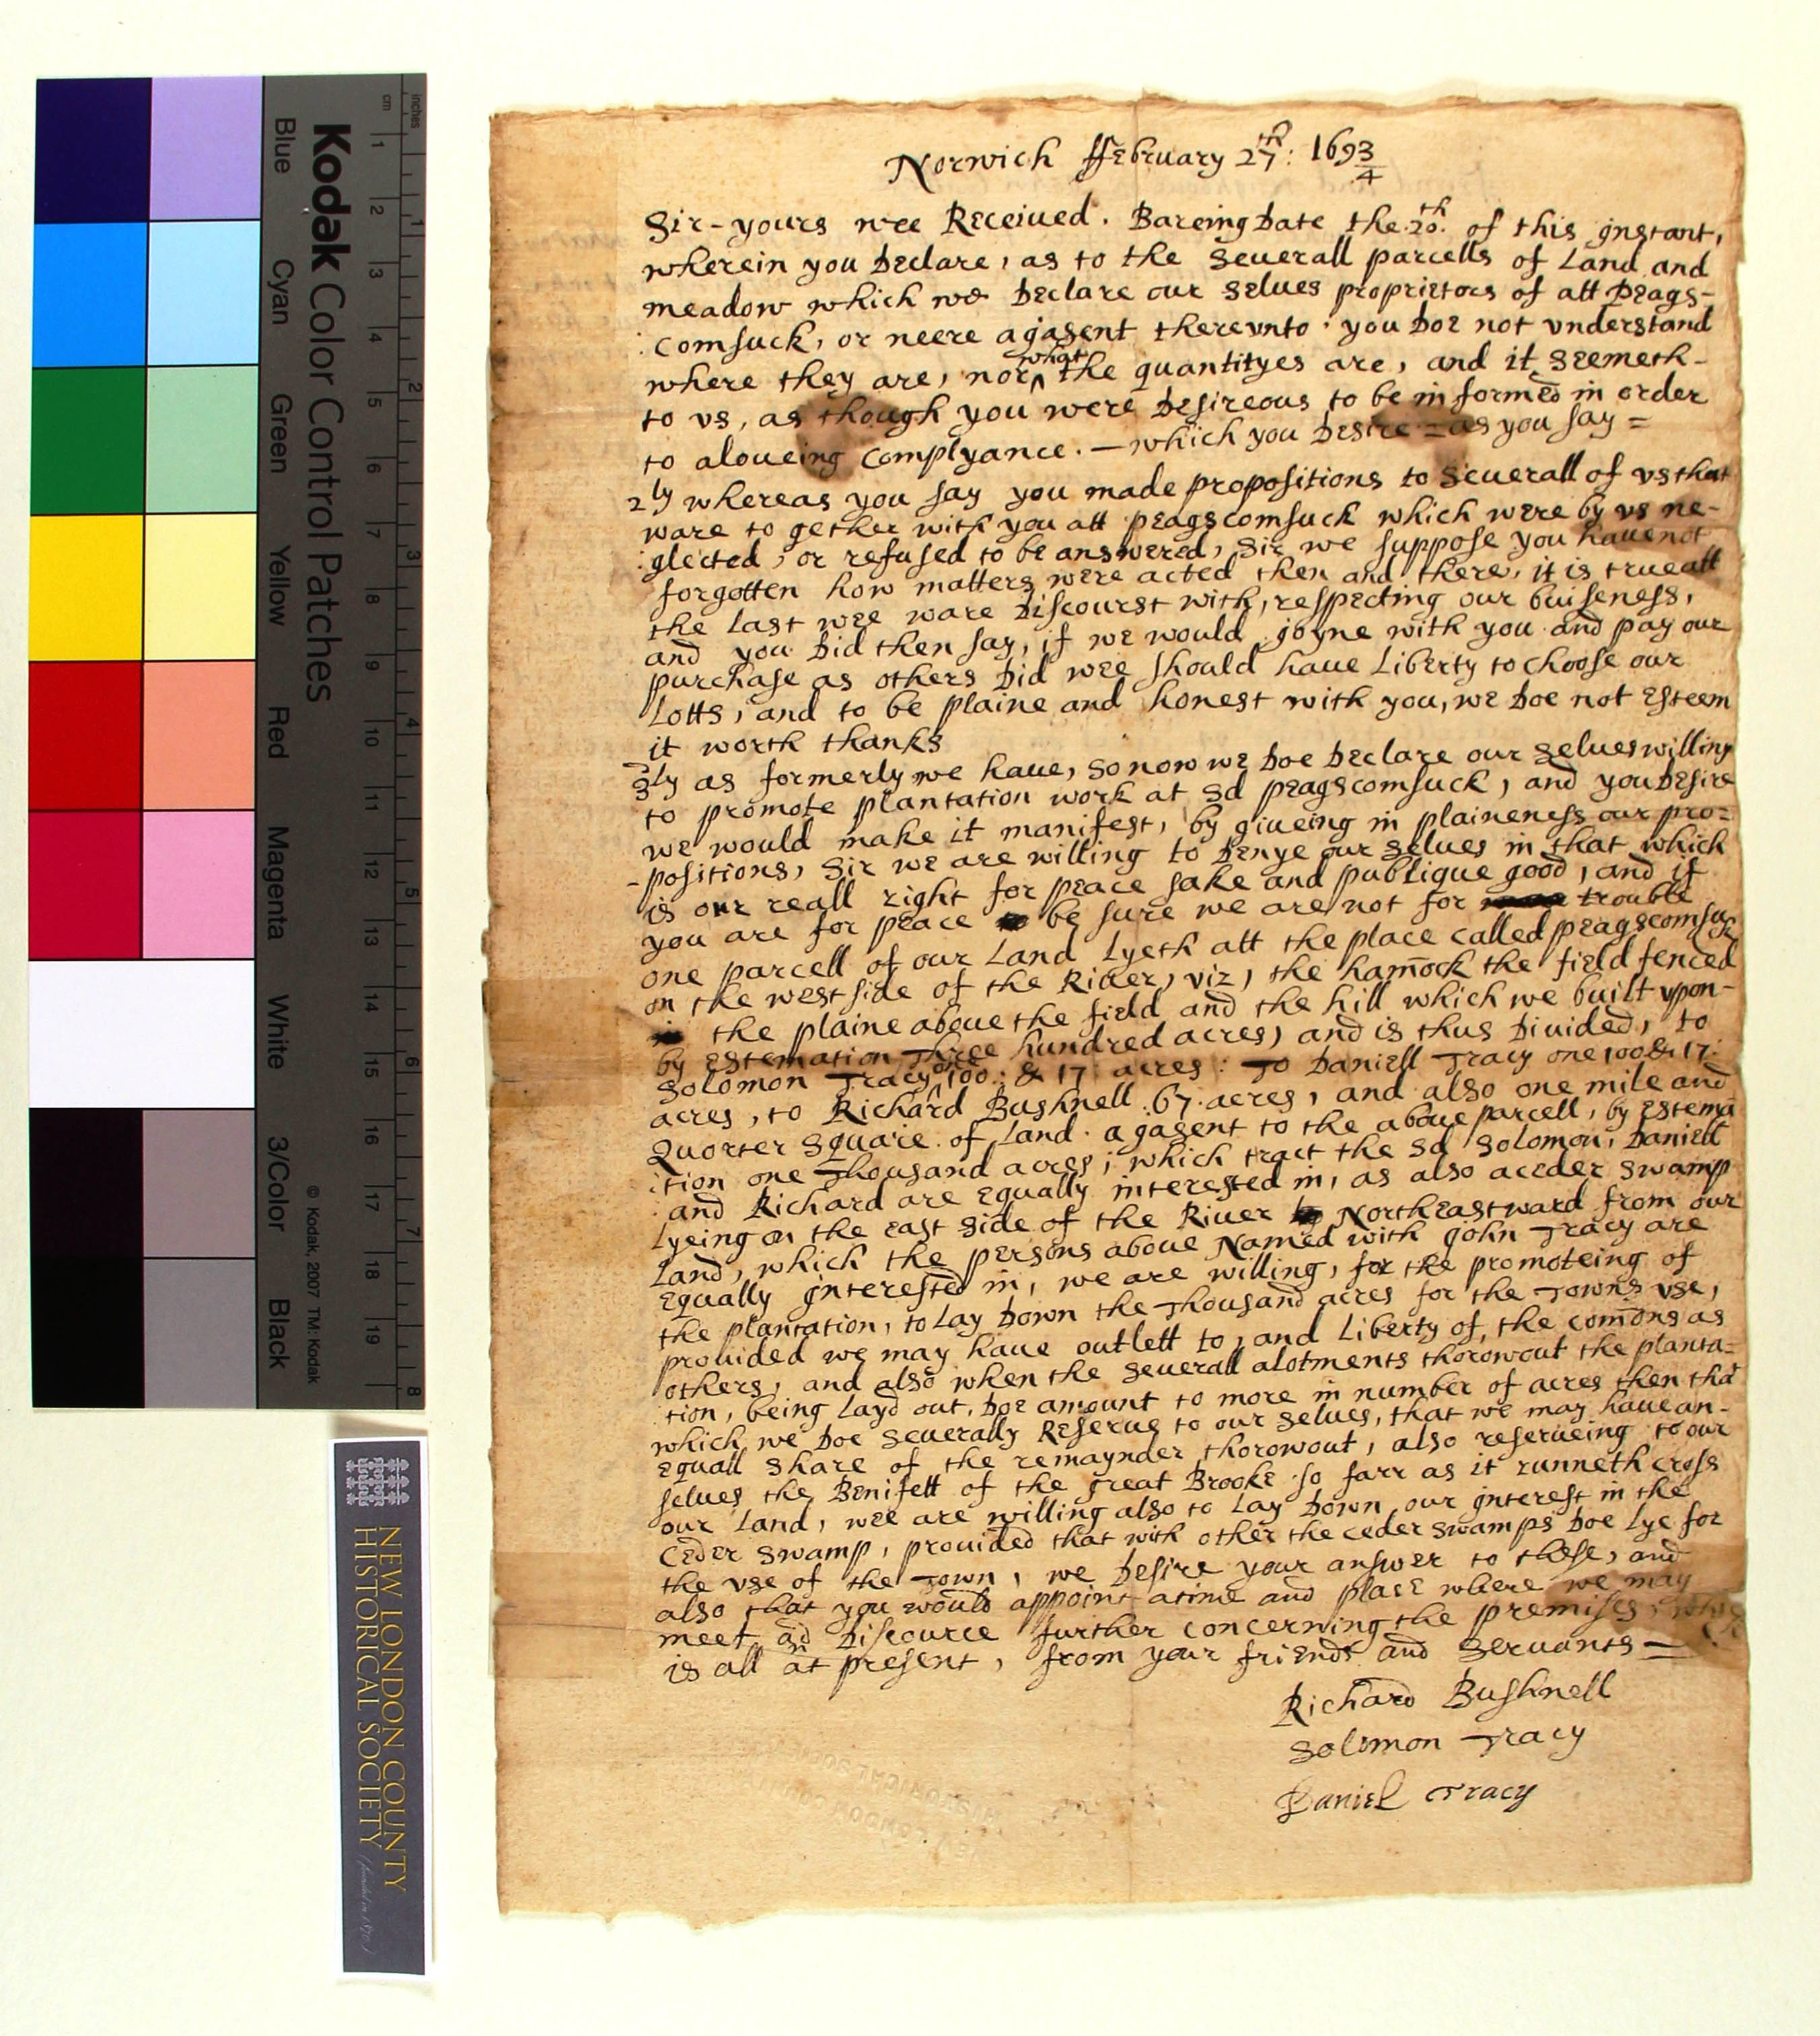 Norwich ffebruary 27th: 1693/4
Sir - yours wee Receiued. Bareing Date the 20th. of this jnstant,
wherein you Declare, as to the seuerall parcells of Land and
meadow which we Declare our selues proprietors of att peags-
:comsuck, or neere agasent therevnto. you doe not vnderstand
where they are, nor what the quantityes are, and it seemeth-
to vs, as though you were Desireous to be informed in order
to aloueing complyance. - which you Desire = as you say =
2ly whereas you say you made propositions to seuerall of vs that
ware to gether with you att peagscomsuck which were by vs ne-
:glected, or refused to be answered, Sir we suppose you haue not
forgotten how matters were acted then and there, it is true att
the Last wee ware Discourst with, respecting our buiseness,
and you Did then say, if we would joyne with you and pay our
purchase as others Did wee should haue Liberty to choose our
Lotts, and to be plaine and honest with you, we Doe not Esteem
it worth thanks
3ly as formerly we haue, so now we Doe Declare our selues willing
to promote plantation work at sd peagscomsuck, and you Desire
we would make it manifest, by giueing in plaineness our pro=
-positions, Sir we are willing to Denye our selues in that which
is our reall right for peace sake and publique good, and if
you are for peace be sure we are not for trouble
one parcell of our Land Lyeth att the place called peagscomsuck
on the west side of the Riuer, viz, the hamock the field fenced
the plaine aboue the field and the hill which we built vpon-
by Estemation Three hundred acres, and is thus Diuided, to
Solomon Tracy one 100: & 17 acres: To Daniell Tracy one 100 & 17:
acres, to Richard Bushnell :67. acres, and also one mile and
Quorter square. of Land. agasent to the aboue parcell, by Estema
:tion one Thousand acres; which tract the sd Solomon, Daniell
and Richard are Equally interested in, as also aceder swamp
Lyeing on the east side of the Riuer Northeastward from our
Land, which the persons aboue Named with john Tracy are
Equally jnterested in, we are willing, for the promoteing of
the plantation, to Lay Down the Thousand acres for the Towns vse,
prouided we may haue outlett to, and Liberty of, the comons as
others, and also when the seuerall alotments thorowout the planta=
tion, being layd out, Doe amount to more in number of acres then that
which we Doe seuerally Reserue to our selues, that we may haue an-
Equall share of the remaynder thorowout, also reserueing to our
selues the Benifett of the great Brooke so farr as it runneth cross
our Land, wee are willing also to Lay Down our jnterest in the
Ceder swamp, prouided that with other the ceder swamps Doe Lye for
the vse of the Town, we Desire your answer to these, and
also that you would appoint atime and place where we may
meet and Discource further concerning the premises,
is all at present, from your friends and Seruants =
Richard Bushnell
Solomon Tracy
Daniel Tracy
Kodak Color Control Patches
Blue Cyan Green Yellow Red Magenta White 3/Color Black
© Kodak, 2007 TM: Kodak
inches 1 2 3 4 5 6 7 8
cm 1 2 3 4 5 6 7 8 9 10 11 12 13 14 15 16 17 18 19
NEW LONDON COUNTY
HISTORICAL SOCIETY